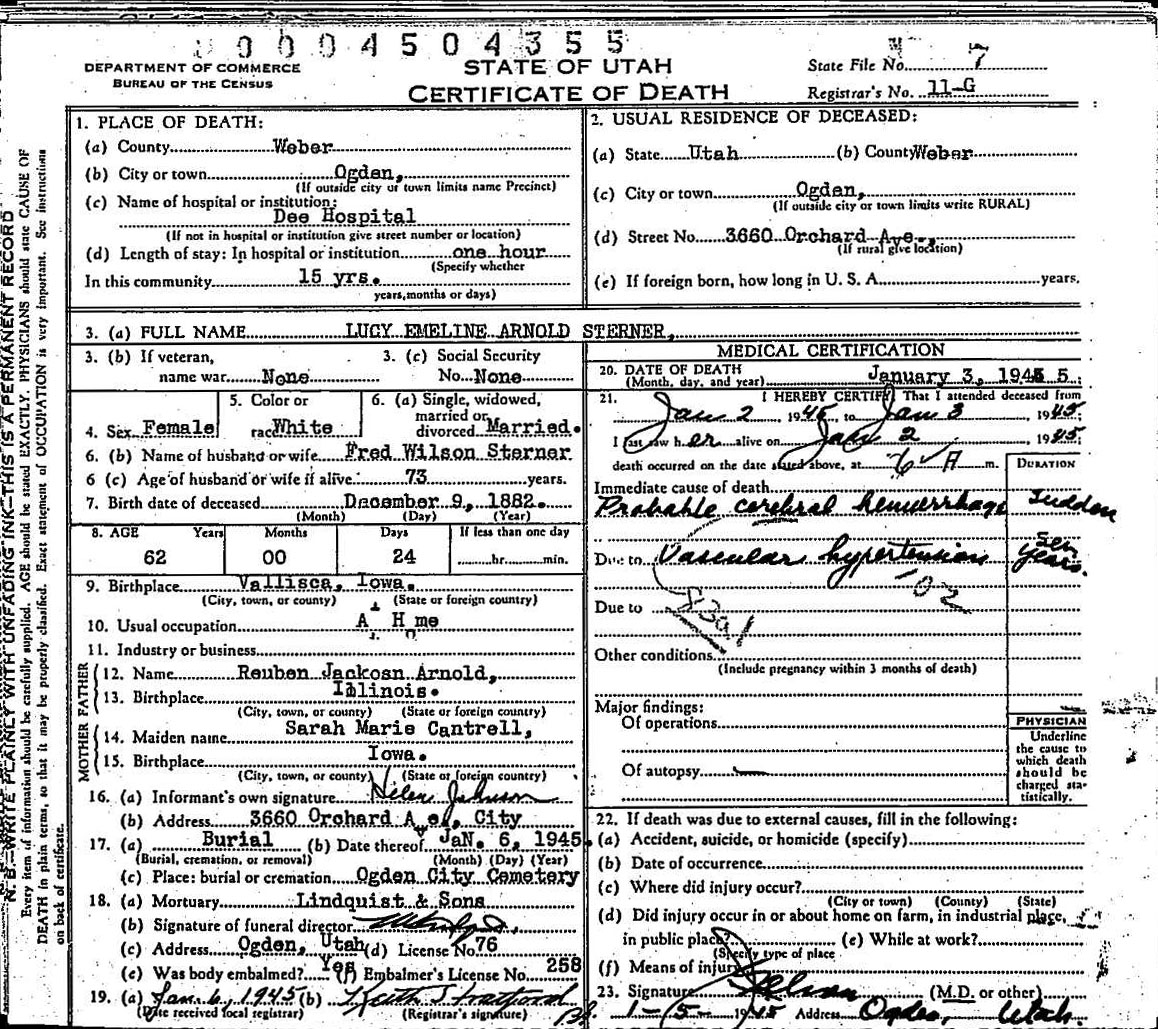 0004504355
DEPARTMENT OF COMMERCE
BUREAU OF THE CENSUS
STATE OF UTAH
CERTIFICATE OF DEATH
State File No. 7
Registrar's No. 11-G
N. B.—WRITE PLAINLY WITH UNFADING INK—THIS IS A PERMANENT RECORD
Every item of information should be carefully supplied. AGE should be stated EXACTLY. PHYSICIANS should state CAUSE OF
DEATH in plain terms, so that it may be properly classified. Exact statement of OCCUPATION is very important. See instructions
on back of certificate.
1. PLACE OF DEATH:
(a) County Weber
(b) City or town Ogden,
(If outside city or town limits name Precinct)
(c) Name of hospital or institution:
Dee Hospital
(If not in hospital or institution give street number or location)
(d) Length of stay: In hospital or institution one hour
(Specify whether
In this community 15 yrs.
years, months or days)
2. USUAL RESIDENCE OF DECEASED:
(a) State Utah (b) County Weber
(c) City or town Ogden,
(If outside city or town limits write RURAL)
(d) Street No. 3660 Orchard Ave.,
(If rural give location)
(e) If foreign born, how long in U. S. A. years.
3. (a) FULL NAME LUCY EMELINE ARNOLD STERNER,
3. (b) If veteran, 3. (c) Social Security
name war None No. None
4. Sex Female
5. Color or
race White
6. (a) Single, widowed,
married or
divorced Married.
6. (b) Name of husband or wife Fred Wilson Sterner
6 (c) Age of husband or wife if alive 73 years.
7. Birth date of deceased December 9, 1882.
(Month) (Day) (Year)
8. AGE Years Months Days If less than one day
62 00 24 hr. min.
9. Birthplace Vallisca, Iowa.
(City, town, or county) (State or foreign country)
10. Usual occupation A H me
11. Industry or business
FATHER
12. Name Reuben Jackosn Arnold,
13. Birthplace Illinois.
(City, town, or county) (State or foreign country)
MOTHER
14. Maiden name Sarah Marie Cantrell,
15. Birthplace Iowa.
(City, town, or county) (State or foreign country)
16. (a) Informant's own signature Helen Johnson
(b) Address 3660 Orchard A e, City
17. (a) Burial (b) Date thereof JaN. 6, 1945.
(Burial, cremation, or removal) (Month) (Day) (Year)
(c) Place: burial or cremation Ogden City Cemetery
18. (a) Mortuary Lindquist & Sons
(b) Signature of funeral director
(c) Address Ogden, Utah (d) License No. 76
(e) Was body embalmed? Yes (f) Embalmer's License No. 258
19. (a) Jan. 6, 1945 (b) Keith Stratford
(Date received local registrar) (Registrar's signature)
MEDICAL CERTIFICATION
20. DATE OF DEATH
(Month, day, and year) January 3, 194 5.
21. I HEREBY CERTIFY That I attended deceased from
Jan 2 1945, to Jan 3, 1945
I last saw h er alive on Jan 2, 1945
death occurred on the date stated above, at 6 A m. DURATION
Immediate cause of death
Probable cerebral hemorrhage Sudden
Due to Vascular hypertension Sev years.
102
Due to
Other conditions
(Include pregnancy within 3 months of death)
Major findings:
Of operations
Of autopsy
PHYSICIAN
Underline
the cause to
which death
should be
charged sta-
tistically.
22. If death was due to external causes, fill in the following:
(a) Accident, suicide, or homicide (specify)
(b) Date of occurrence
(c) Where did injury occur?
(City or town) (County) (State)
(d) Did injury occur in or about home on farm, in industrial place,
in public place? (e) While at work?
(Specify type of place
(f) Means of injury
23. Signature (M.D. or other)
1-5-1945 Address Ogden, Utah